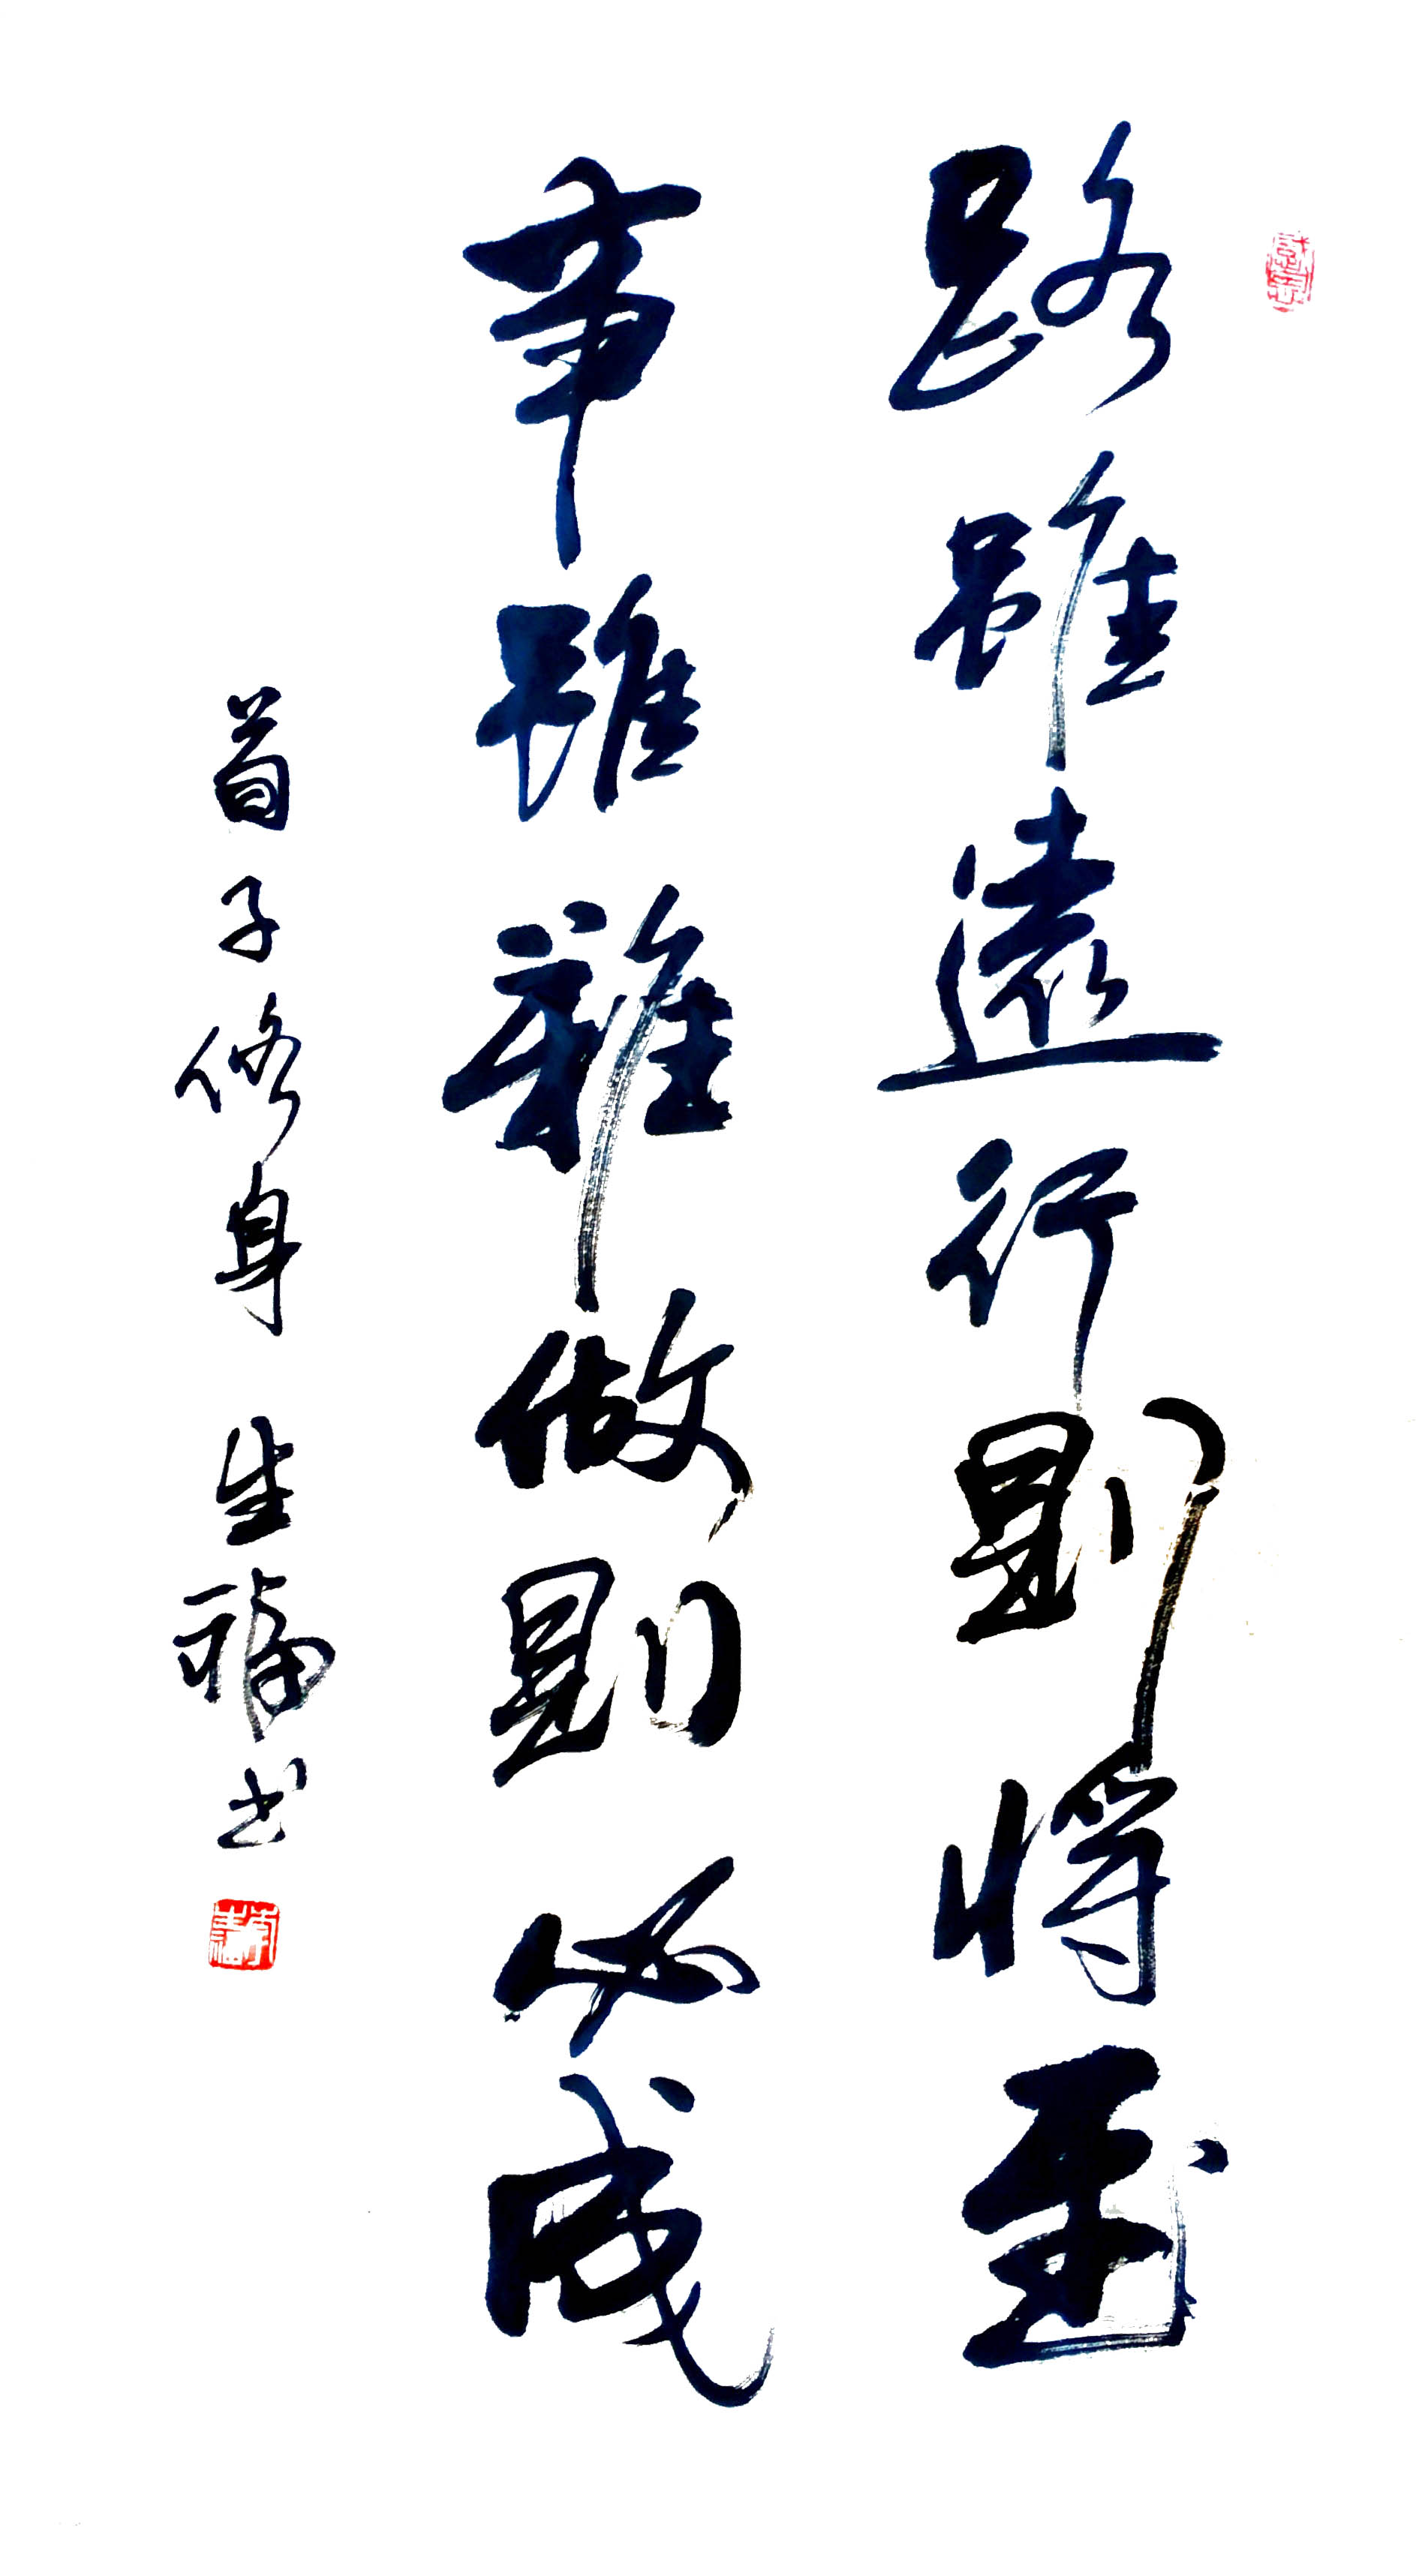 路雖遠行則将到
事雖難做則必成
荀子修身 生福书